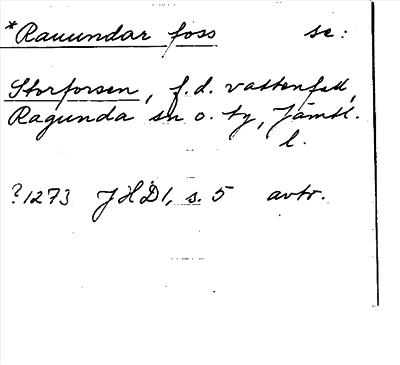 *Rauundar foss se:
Storforsen, f.d. vattenfall,
Ragunda sn o. tg, Jämtl.
l.
?1273 JHD1, s. 5 avtr.